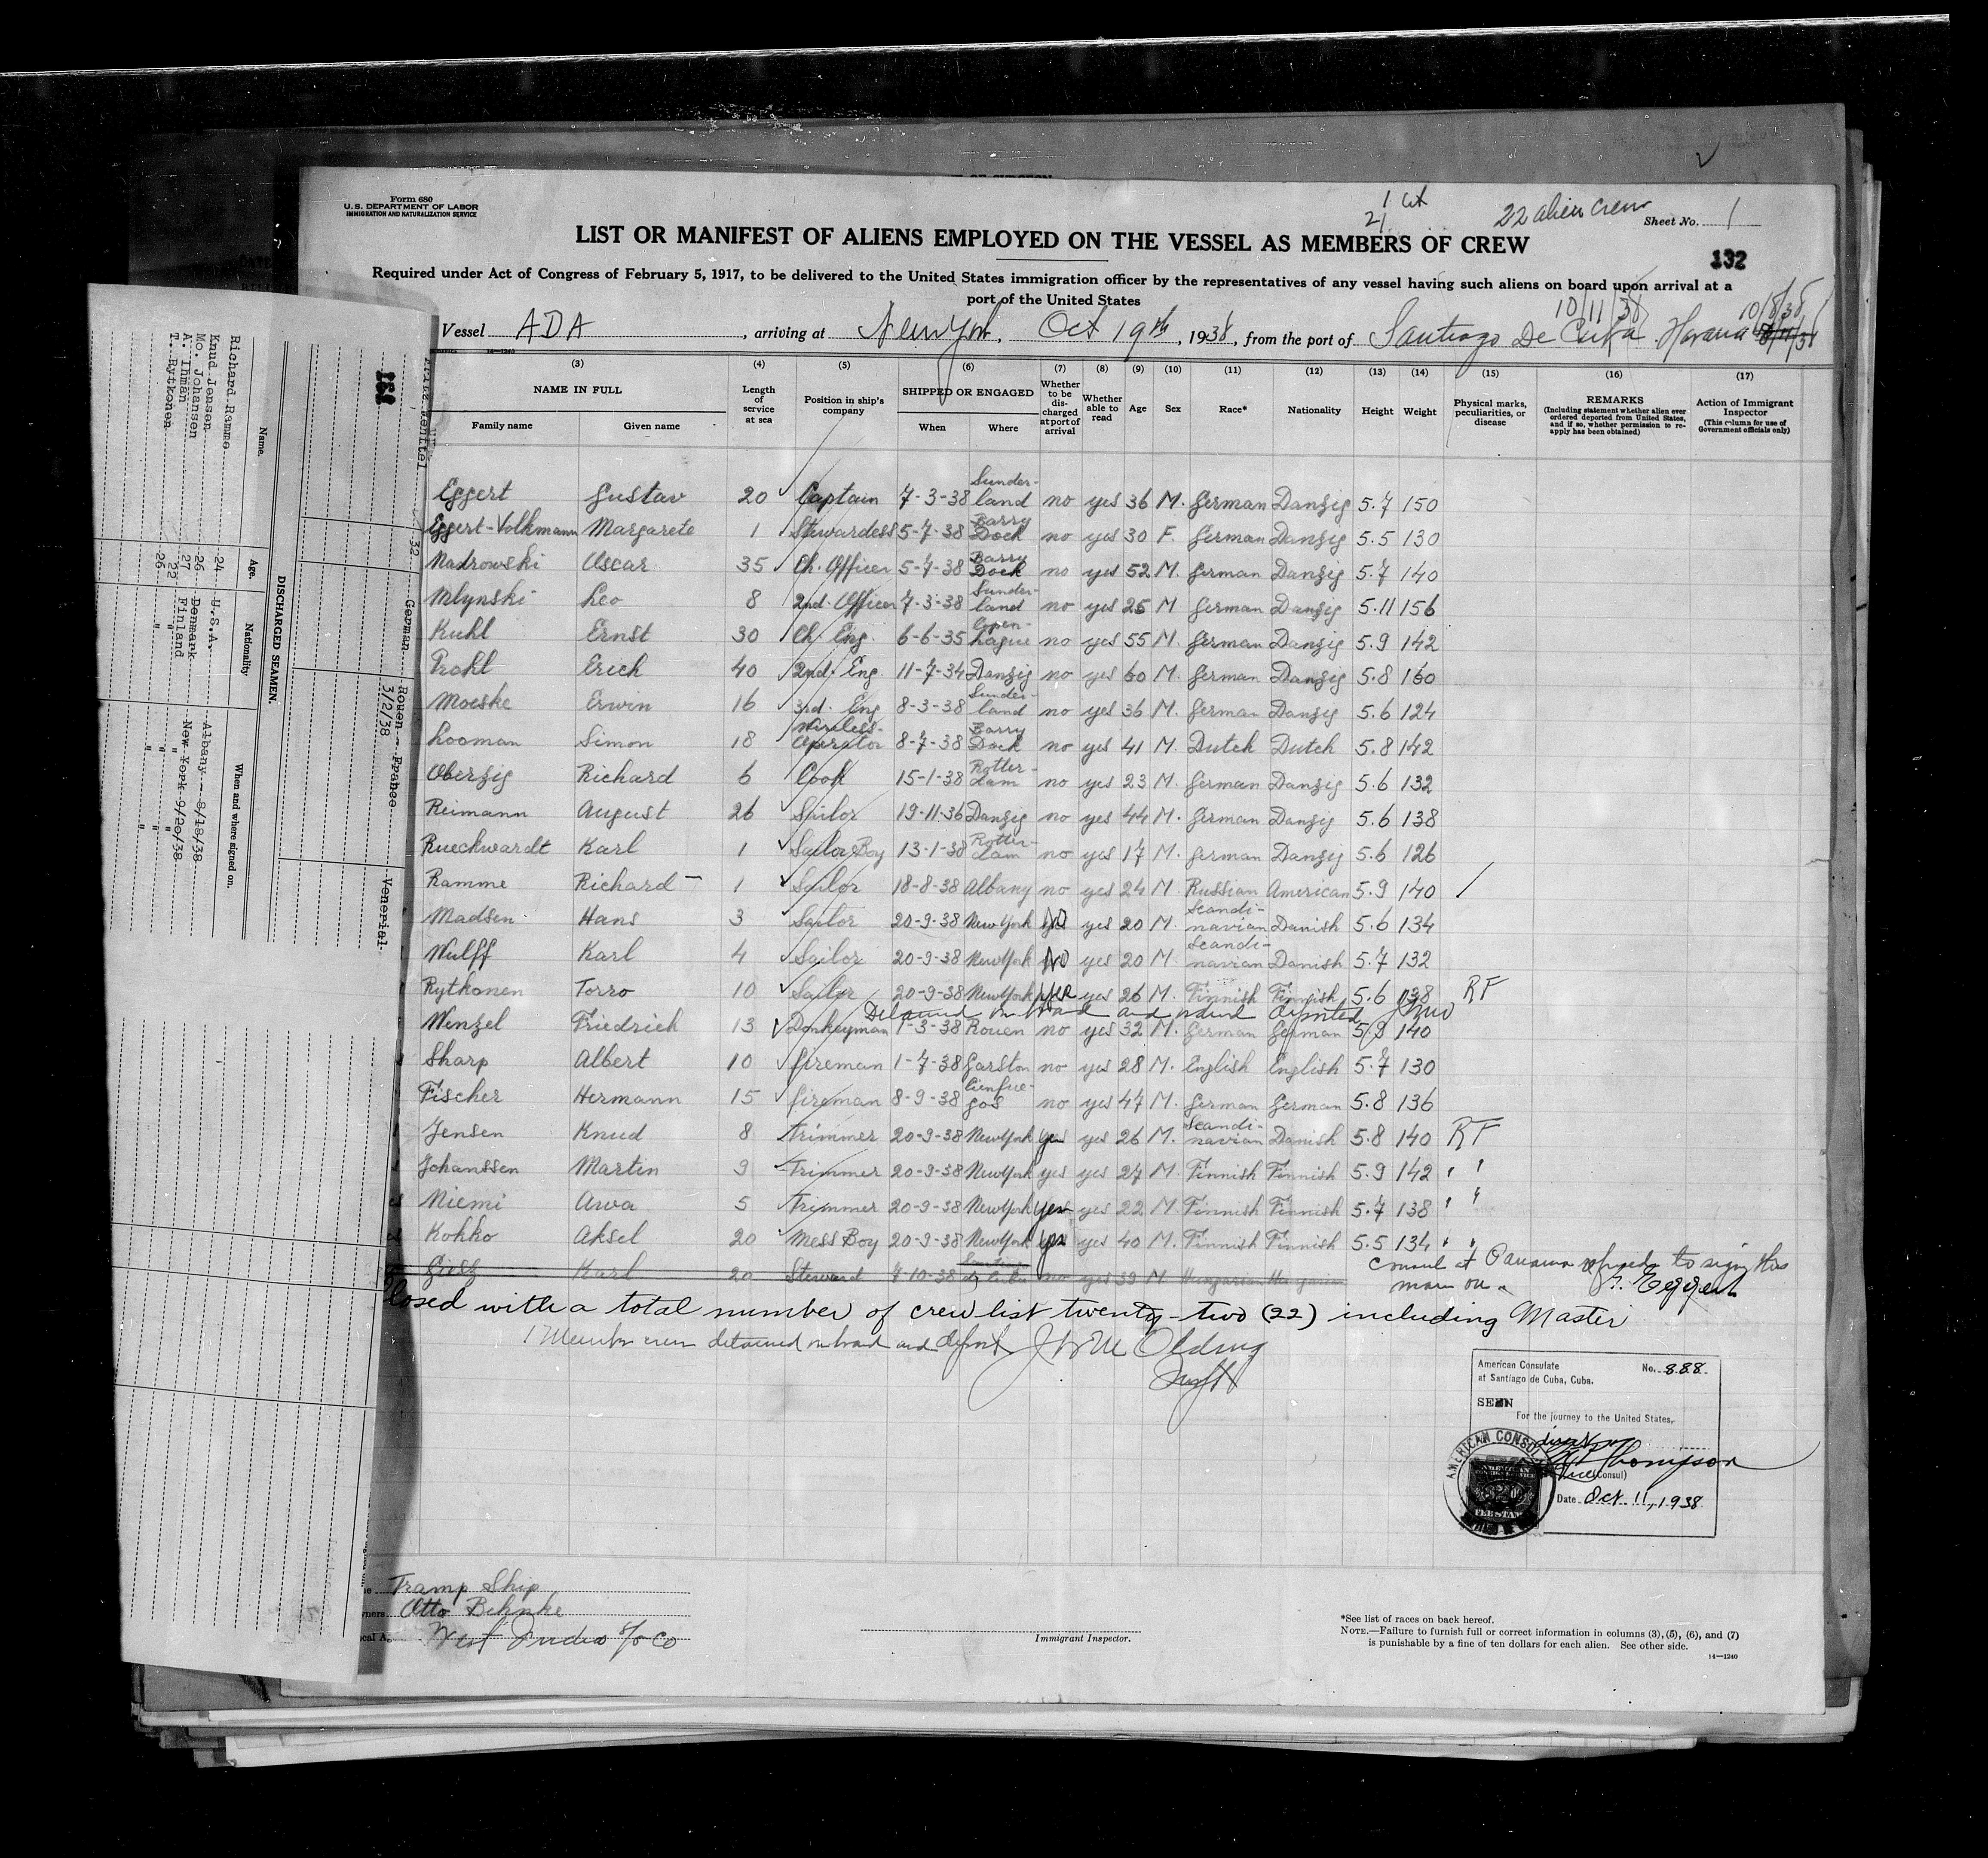 1 cit
21
22 alien crew
Form 680
U.S. DEPARTMENT OF LABOR
IMMIGRATION AND NATURALIZATION SERVICE
Sheet No. 1
LIST OR MANIFEST OF ALIENS EMPLOYED ON THE VESSEL AS MEMBERS OF CREW
132
Required under Act of Congress of February 5, 1917, to be delivered to the United States immigration officer by the representatives of any vessel having such aliens on board upon arrival at a
port of the United States
10/11/38 10/8/38
Vessel ADA, arriving at New York, Oct 19th, 1938, from the port of Santiago De Cuba Havana
14-1240
(3) (4) (5) (6) (7) (8) (9) (10) (11) (12) (13) (14) (15) (16) (17)
NAME IN FULL
Family name Given name
Length of service at sea
Position in ship's company
SHIPPED OR ENGAGED
When Where
Whether to be discharged at port of arrival
Whether able to read
Age
Sex
Race*
Nationality
Height
Weight
Physical marks, peculiarities, or disease
REMARKS
(Including statement whether alien ever ordered deported from United States, and if so, whether permission to reapply has been obtained)
Action of Immigrant Inspector
(This column for use of Government officials only)
Eggert Gustav 20 Captain 7-3-38 Sunder-land no yes 36 M. German Danzig 5.7 150
Eggert-Volkmann Margarete 1 Stewardess 5-7-38 Barry Dock no yes 30 F. German Danzig 5.5 130
Nadrowski Oscar 35 Ch. Officer 5-7-38 Barry Dock no yes 52 M. German Danzig 5.7 140
Mlynski Leo 8 2nd. Officer 7-3-38 Sunder-land no yes 25 M German Danzig 5.11 156
Kuhl Ernst 30 Ch. Eng. 6-6-35 Copen-hague no yes 55 M. German Danzig 5.9 142
Prohl Erich 40 2nd. Eng. 11-7-34 Danzig no yes 60 M. German Danzig 5.8 160
Moeske Erwin 16 3rd. Eng 8-3-38 Sunder-land no yes 36 M. German Danzig 5.6 124
Looman Simon 18 Wireless-Operator 8-7-38 Barry Dock no yes 41 M. Dutch Dutch 5.8 142
Oberzig Richard 6 Cook 15-1-38 Rotter-dam no yes 23 M. German Danzig 5.6 132
Reimann August 26 Sailor 19-11-36 Danzig no yes 44 M. German Danzig 5.6 138
Rueckwardt Karl 1 Sailor Boy 13-1-38 Rotter-dam no yes 17 M. German Danzig 5.6 126
Ramme Richard 1 Sailor 18-8-38 Albany no yes 24 M. Russian American 5.9 140
Madsen Hans 3 Sailor 20-9-38 New York No yes 20 M. Scandi-navian Danish 5.6 134
Wulff Karl 4 Sailor 20-9-38 New York No yes 20 M. Scandi-navian Danish 5.7 132
Rytkonen Torro 10 Sailor 20-9-38 New York yes yes 26 M. Finnish Finnish 5.6 138 RF
Detained on board and
Wenzel Friedrich 13 Donkeyman 1-3-38 Rouen no yes 32 M. German German 5.9 140
Sharp Albert 10 fireman 1-7-38 Garston no yes 28 M. English English 5.7 130
Fischer Hermann 15 fireman 8-9-38 Cienfue-gos no yes 47 M. German German 5.8 136
Jensen Knud 8 Trimmer 20-9-38 New York yes yes 26 M. Scandi-navian Danish 5.8 140 RF
Johanssen Martin 9 Trimmer 20-9-38 New York yes yes 27 M. Finnish Finnish 5.9 142 " "
Niemi Arva 5 Trimmer 20-9-38 New York yes yes 22 M. Finnish Finnish 5.7 138 " "
Kohko Aksel 20 Mess Boy 20-9-38 New York yes yes 40 M. Finnish Finnish 5.5 134 " "
Karl 20 Steward 7-10-38 no yes 39 M Hungarian Hungarian
Consul at Panama refused to sign this
man on. G. Eggert
Closed with a total number of crew list twenty-two (22) including Master
1 Member crew detained on board and
American Consulate
at Santiago de Cuba, Cuba.
No. 888
SEEN
For the journey to the United States,
Thompson
Vice (Consul)
Date Oct 11, 1938
AMERICAN CONSUL
FEE STAMP
Tramp Ship
Otto Behnke
West Indies S/S Co
Immigrant Inspector.
*See list of races on back hereof.
NOTE.—Failure to furnish full or correct information in columns (3), (5), (6), and (7)
is punishable by a fine of ten dollars for each alien. See other side.
14—1240
131
32 German Rouen - France 3/2/38 Venerial.
DISCHARGED SEAMEN.
Name. Age. Nationality When and where signed on.
Richard Ramme 24 U.S.A. Albany - 8/18/38
Knud Jensen 26 Denmark New York 9/20/38
Mo. Johansen 27 Finland " "
A. Ihman 22 " " "
T. Rytkonen 26 " " "